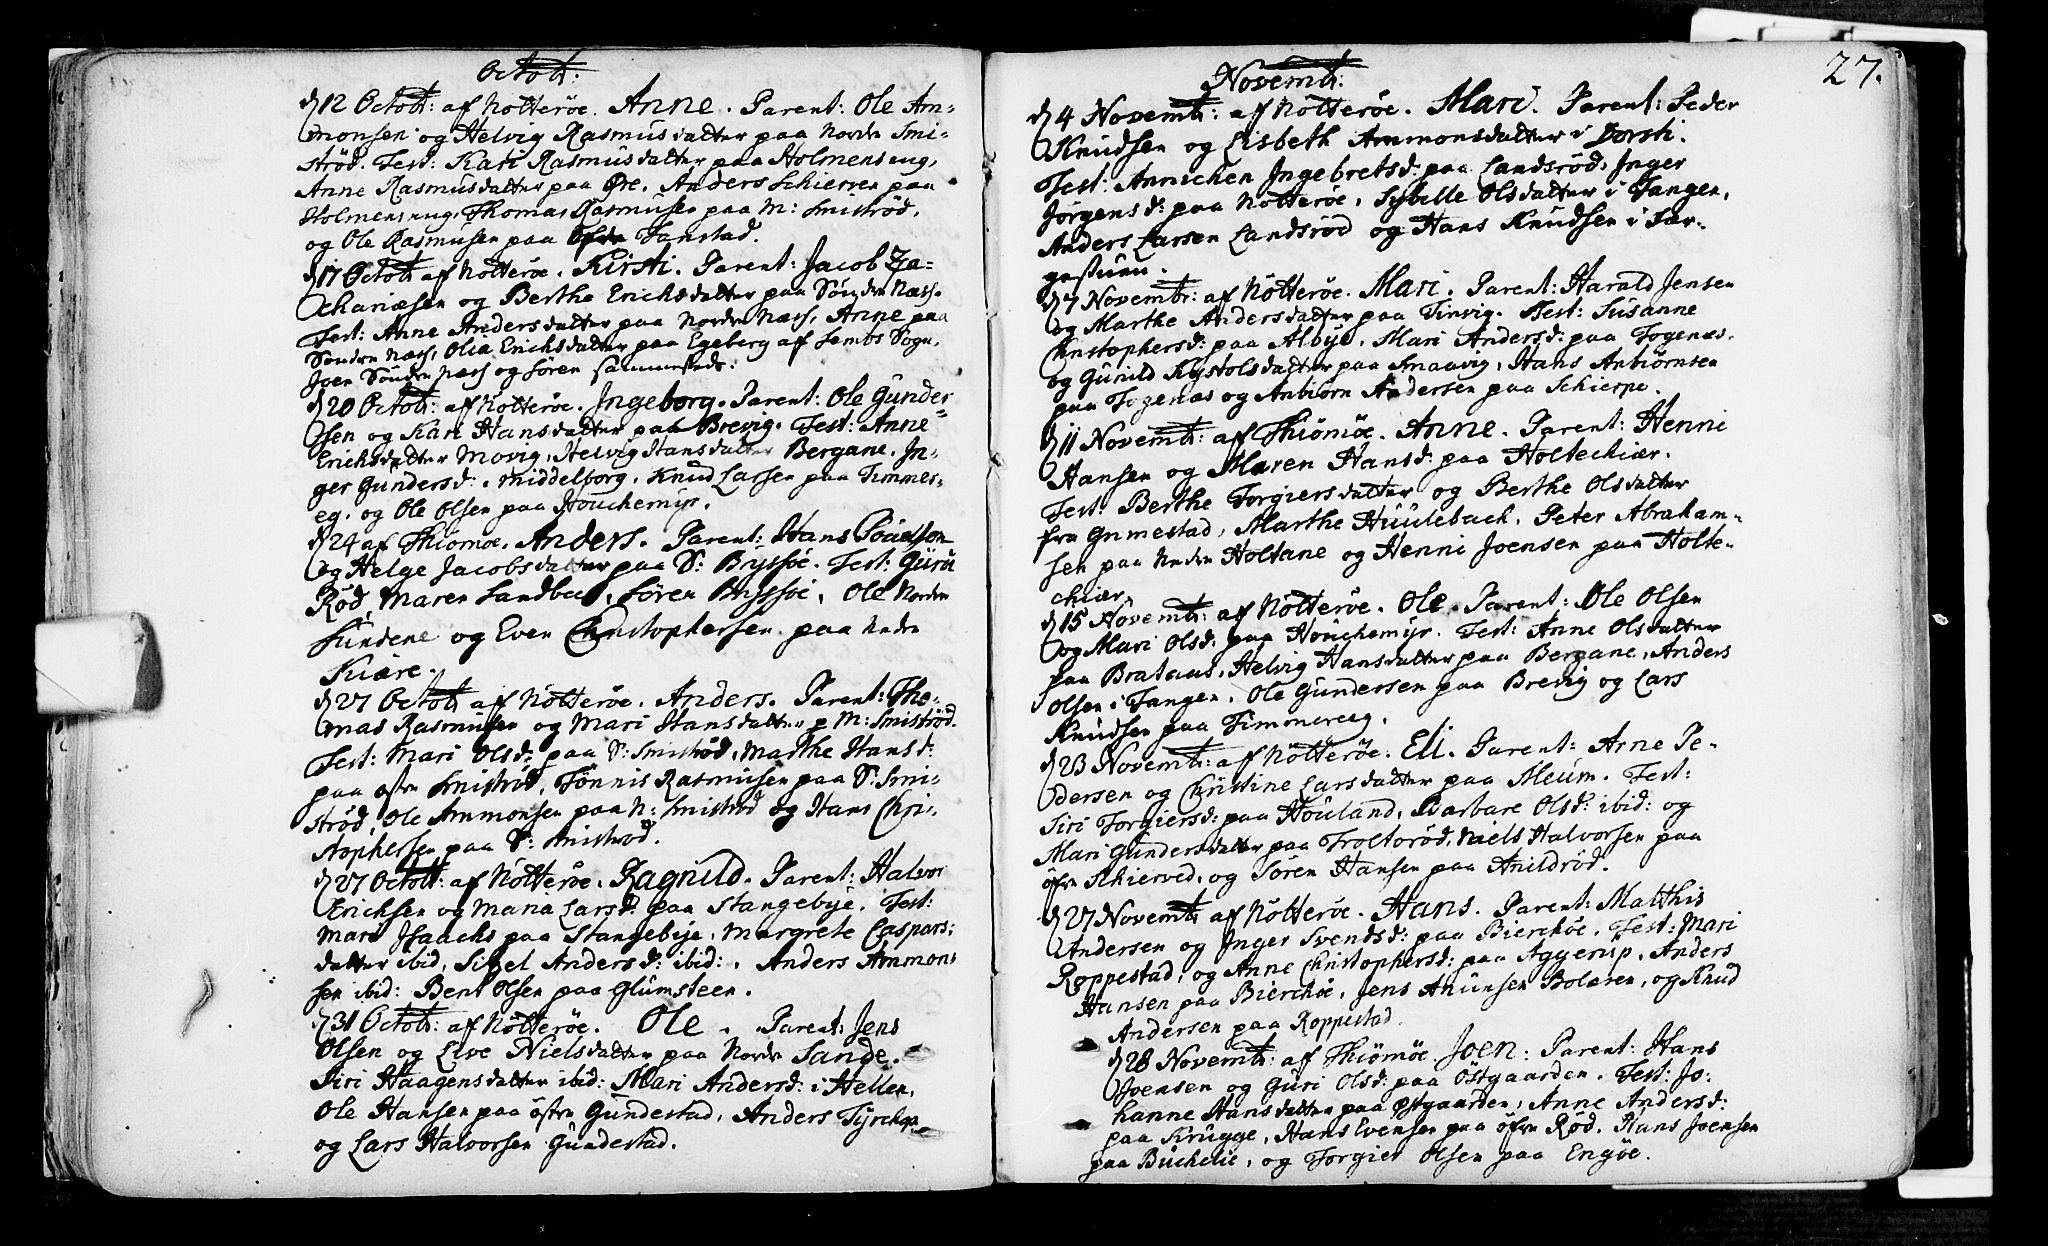 Octob:
d 12 Octob: af Nötteröe. Anne. Parent: Ole Am=
monsen og Helvig Rasmusdatter paa Nordre Smi=
ströd. Test: Kari Rasmusdatter paa Holmenseng,
Anne Rasmusdatter paa Øre, Anders Schierven paa
Holmenseng, Thomas Rasmusen paa M: Smiströd,
og Ole Rasmusen paa Tanstad.
d 17 Octob: af Nötteröe. Kirsti. Parent: Jacob Za=
chariæsen og Berthe Erichsdatter paa Söndre Næss.
Test: Anne Andersdatter paa Nordre Næss, Anne paa
Söndre Næss, Olia Erichsdatter paa Egeberg af Sembs Sogn,
Joen Söndre Næss og Sören sammesteds.
d 20 Octob: af Nötteröe. Ingeborg. Parent: Ole Gunder=
sen og Kari Hansdatter paa Brevig. Test: Anne
Erichsdatter Movig, Helvig Hansdatter Bergane. In=
ger Gundersd: Middelborg, Knud Larsen paa Timmer=
eg. og Ole Olsen paa Houchemyr.
d 24 af Thiömöe. Anders. Parent: Hans
og Helge Jacobsdatter paa S: Bryssöe. Test: Guroe
Röd, Maren Sandbech, Sören Bryssöe, Ole Nordre
Sundene og Even Christophersen paa Nedre
Kiære.
d 27 Octob: af Nötteröe. Anders. Parent: Tho=
mas Rasmusen og Mari Hansdatter p M: Smiströd.
Test: Mari Olsd: paa S: Smiströd, Marthe Hansd:
paa östre Smiströd, Tönnis Rasmusen paa S: Smi=
ströd, Ole Ammonsen paa N: Smiströd og Hans Chri=
stophersen paa S: Smiströd.
d 27 Octob: af Nötteröe. Ragnild. Parent: Halvor
Erichsen og Maria Larsd: paa Stangebye. Test:
Mari Isaachs paa Stangebye, Margrete Caspars=
datter ibid, Sibel Andersd: ibid:. Anders Ammon=
sen ibid: Bent Olsen paa Glumsteen.
d 31 Octob: af Nötteröe. Ole. Parent: Jens
Olsen og Live Nielsdatter paa Nordre Sande.
Siri Haagensdatter ibid: Mari Andersd: i Hellen,
Ole Hansen paa östre Gundestad, Anders
og Lars Halvorsen Gundestad.
27.
Novemb:
d 4 Novemb: af Nötteröe. Mari. Parent: Peder
Knudsen og Lisbeth Ammonsdatter i Torsti.
Test: Annichen Ingebretsd: paa Landsröd, Inger
Jörgensd: paa Nötteröe, Sybelle Olsdatter i Tangen,
Anders Larsen Landsröd og Hans Knudsen i Fær=
gestuen.
d 7 Novemb: af Nötteröe. Mari. Parent: Harald Jensen
og Marthe Andersdatter paa Tinvig. Test: Susanne
Christophersd: paa Albye, Mari Andersd: paa Togenæs.
og Gunild Kystolsdatter paa Smaavig, Hans Anbiörnsen
paa Togenæs og Anbiörn Andersen paa Schierpe.
d 11 Novemb: af Thiömöe. Anne. Parent: Henni
Hansen og Maren Hansd: paa Holtechiær.
Test: Berthe Torgiersdatter og Berthe Olsdatter
fra Grimestad, Marthe Huulebach, Peter Abraham=
sen paa Nedre Holtane og Henni Joensen paa Holte=
chiær.
d 15 Novemb: af Nötteröe. Ole. Parent: Ole Olsen
og Mari Olsd: paa Houchemyr. Test: Anne Olsdatter
paa Brataas, Helvig Hansdatter paa Bergane, Anders
Olsen i Tangen, Ole Gundersen paa Brevig og Lars
Knudsen paa Timmereeg.
d 23 Novemb: af Nötteröe. Eli. Parent: Arne Pe=
dersen og Christine Larsdatter paa Meum. Test:
Siri Torgiersd: paa Houland, Barbare Olsd: ibid: og
Mari Gundersdatter paa Troltoröd, Niels Halvorsen paa
öfre Schierved, og Sören Hansen paa Anildröd.
d 27 Novemb: af Nötteröe. Hans. Parent: Matthis
Andersen og Inger Svendsd: paa Bierchöe. Test: Mari
Roppestad, og Anne Christophersd: paa Aggerup, Anders
Hansen paa Bierchöe, Jens Anunsen Bolæren, og Knud
Andersen paa Roppestad.
d 28 Novemb: af Thiömöe. Joen: Parent: Hans
Joensen og Guri Olsd: paa Östgaarden. Test: Jo=
hanne Hansdatter paa Östgaarden, Anne Andersd:
paa Krugge, Hans Evensen paa öfre Röd, Hans Joensen
paa Buchelie, og Torgier Olsen paa Engöe.